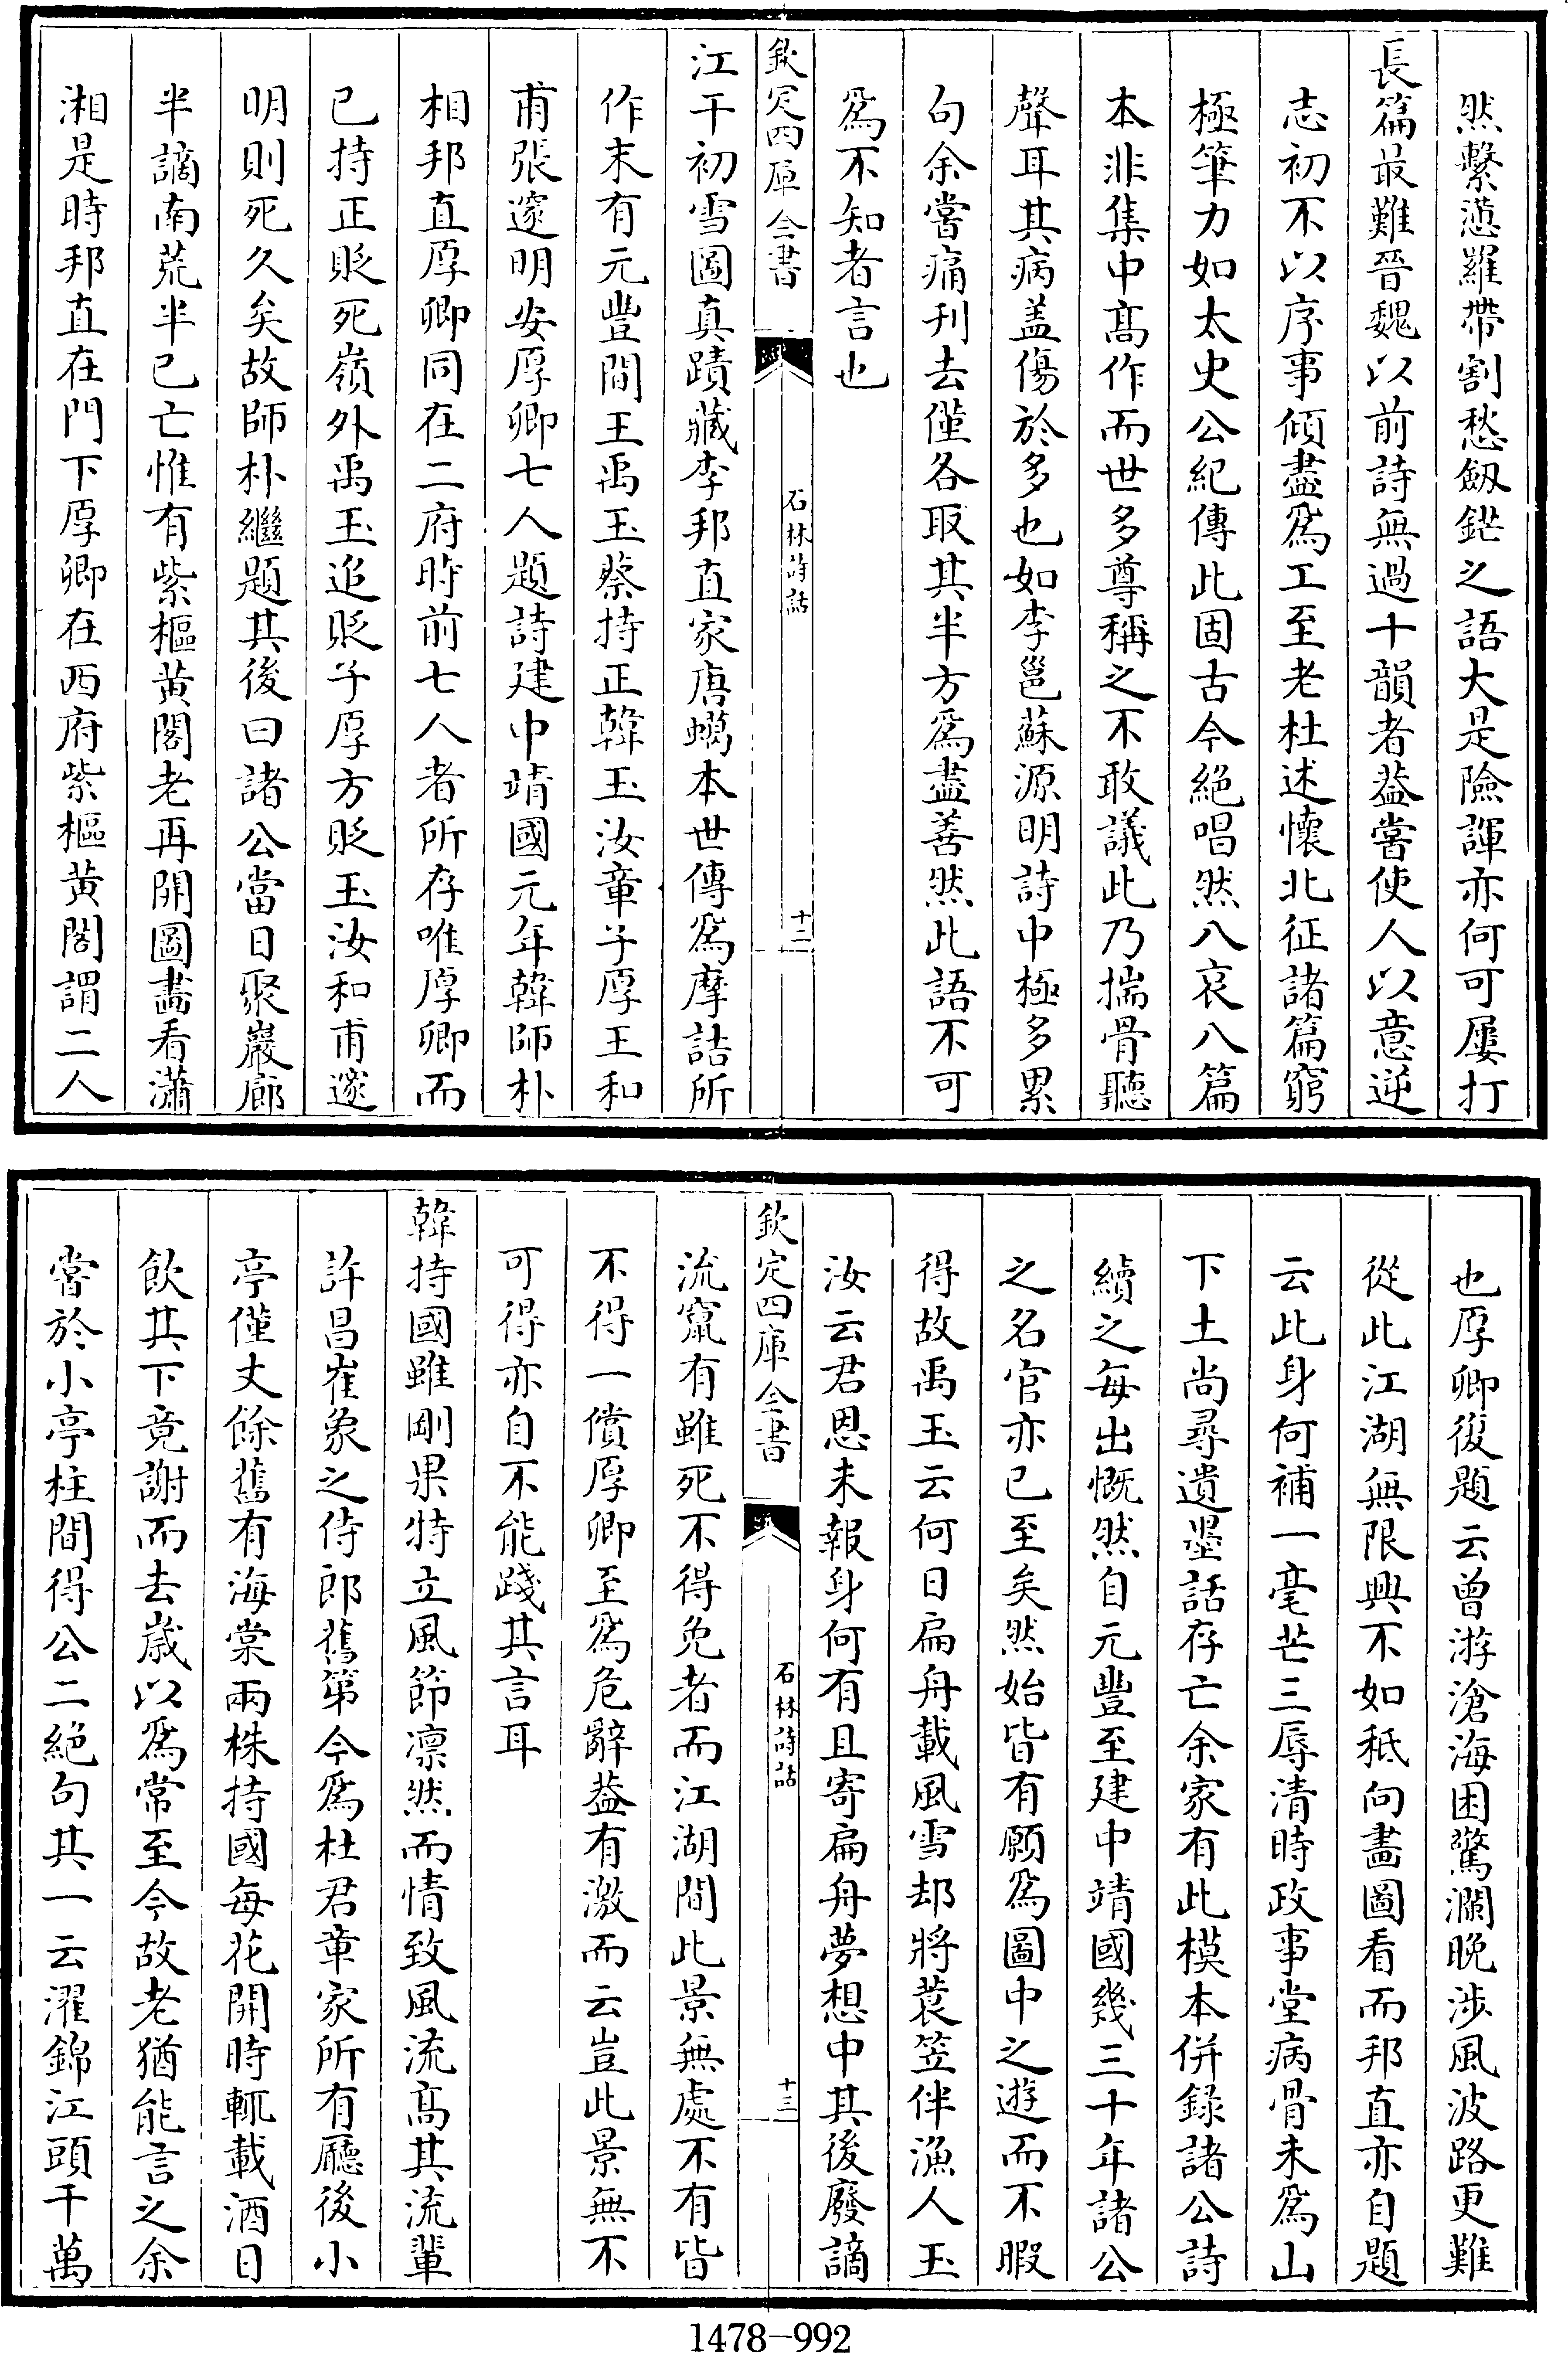 然繫懣羅帶割愁劔鋩之語大是險諢亦何可屢打
長篇最難晉魏以前詩無過十韻者葢嘗使人以意逆
志初不以序事傾盡爲工至老杜述懷北征諸篇窮
極筆力如太史公紀傳此固古今絕唱然八哀八篇
本非集中髙作而世多尊稱之不敢議此乃揣骨聽
聲耳其病盖傷於多也如李邕蘇源明詩中極多累
句余嘗痛刋去僅各取其半方爲盡善然此語不可
爲不知者言也
欽定四庫全書
石林詩話
十二
江干初雪圖真蹟藏李邦直家唐蠟本世傳爲摩詰所
作末有元豐間王禹玉蔡持正韓玉汝章子厚王和
甫張邃明安厚卿七人題詩建中靖國元年韓師朴
相邦直厚卿同在二府時前七人者所存唯厚卿而
已持正貶死嶺外禹玉追貶子厚方貶玉汝和甫邃
明則死久矣故師朴繼題其後曰諸公當日聚巖廊
半謫南荒半已亡惟有紫樞黄閣老再開圖畵看瀟
湘是時邦直在門下厚卿在西府紫樞黄閣謂二人
也厚卿復題云曾游滄海困驚瀾晚涉風波路更難
從此江湖無限興不如秪向畵圖看而邦直亦自題
云此身何補一毫芒三辱清時政事堂病骨未爲山
下土尚尋遺墨話存亡余家有此模本併録諸公詩
續之每出慨然自元豐至建中靖國幾三十年諸公
之名官亦已至矣然始皆有願爲圖中之遊而不暇
得故禹玉云何日扁舟載風雪却將蓑笠伴漁人玉
汝云君恩未報身何有且寄扁舟夢想中其後廢謫
欽定四庫全書
石林詩話
十三
流竄有雖死不得免者而江湖間此景無處不有皆
不得一償厚卿至爲危辭葢有激而云豈此景無不
可得亦自不能踐其言耳
韓持國雖剛果特立風節凛然而情致風流髙其流輩
許昌崔象之侍郎舊第今爲杜君章家所有廳後小
亭僅丈餘舊有海棠兩株持國每花開時輒載酒日
飲其下竟謝而去歲以爲常至今故老猶能言之余
嘗於小亭柱間得公二絕句其一云濯錦江頭千萬
1478-992